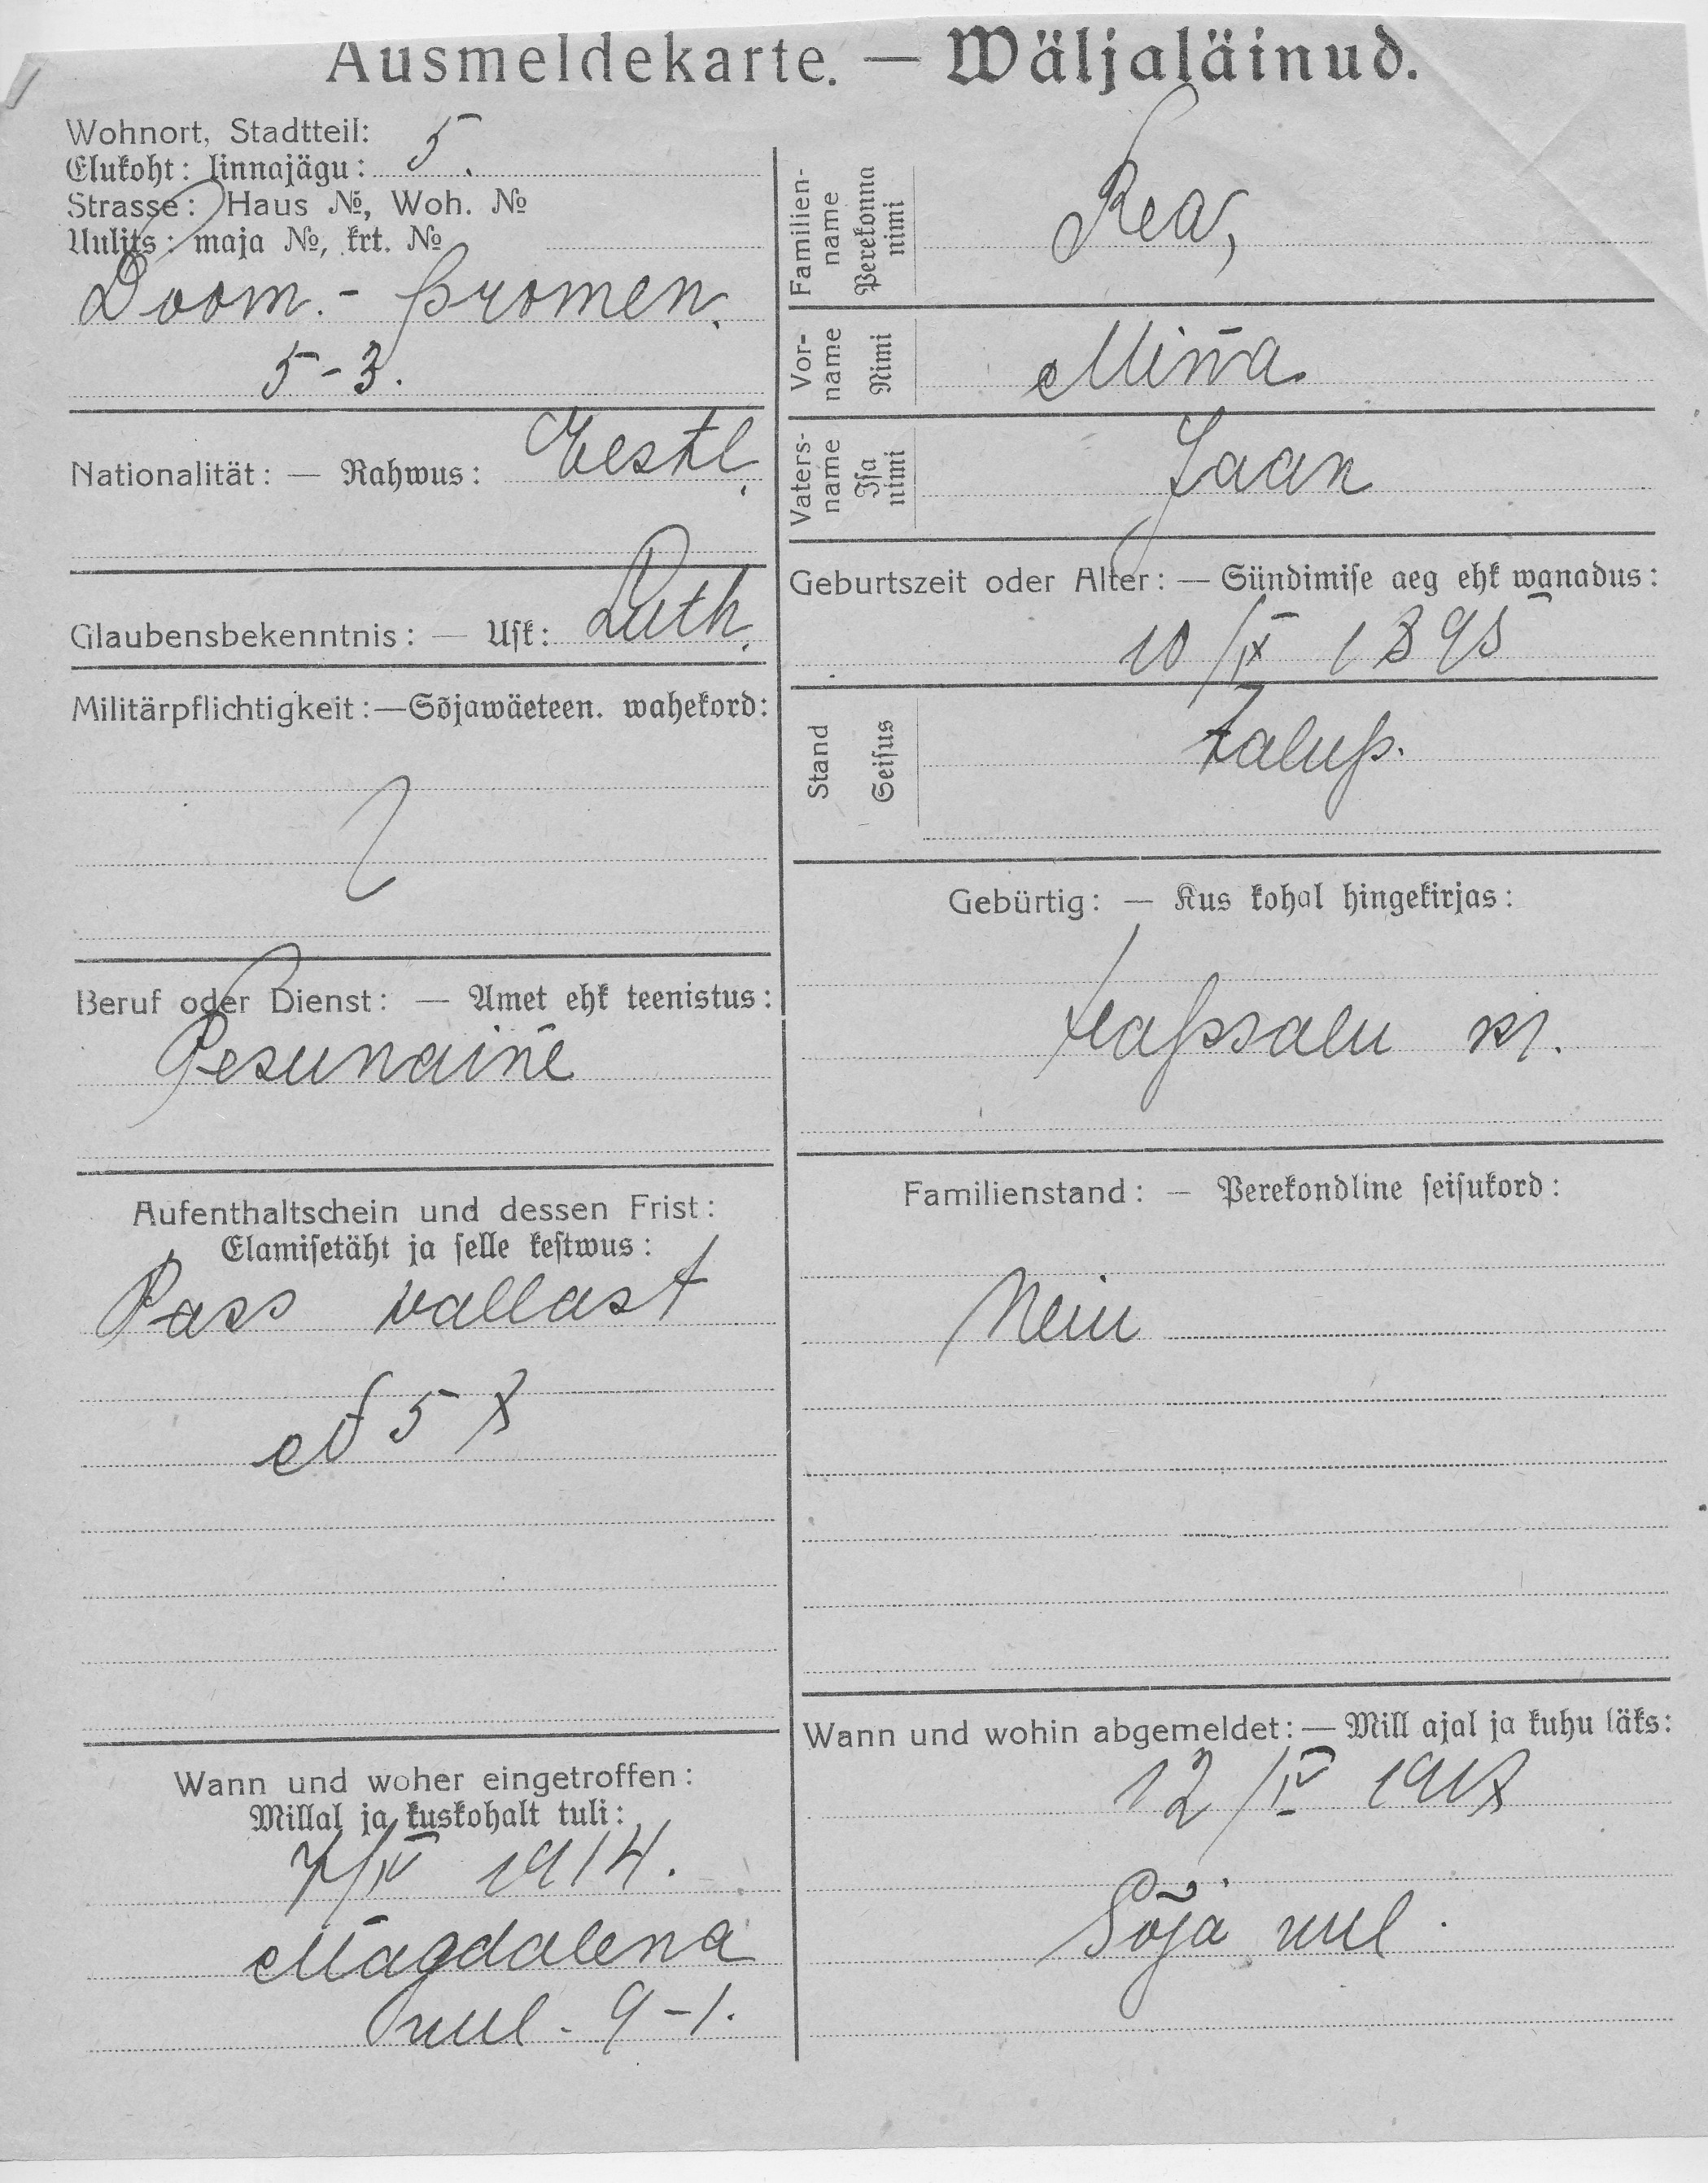 Ausmeldekarte. — Wäljaläinud.
Wohnort, Stadtteil:
Elukoht: linnajägu: 5.
Strasse: Haus №, Woh. №
Uulits: maja №, krt. №
Doom.-promen.
5-3.
Nationalität: — Rahwus: Eestl.
Glaubensbekenntnis: — Usk: Luth.
Militärpflichtigkeit: — Sõjawäeteen. wahekord:
Beruf oder Dienst: — Amet ehk teenistus:
Pesunaine
Aufenthaltschein und dessen Frist:
Elamisetäht ja selle kestwus:
Pass vallast
№ 57
Wann und woher eingetroffen:
Millal ja kuskohalt tuli:
7/IV 1914.
Magdalena
uul. 9-1.
Familien-
name
Perekonna
nimi
Rea,
Vor-
name
Nimi
Miina
Vaters-
name
Isa
nimi
Jaan
Geburtszeit oder Alter: — Sündimise aeg ehk wanadus:
10/IX 1895
Stand
Seisus
Talup.
Gebürtig: — Kus kohal hingekirjas:
Hapsalu kr.
Familienstand: — Perekondline seisukord:
Nein
Wann und wohin abgemeldet: — Mill ajal ja kuhu läks:
12/IV 1917
Sõja uul.